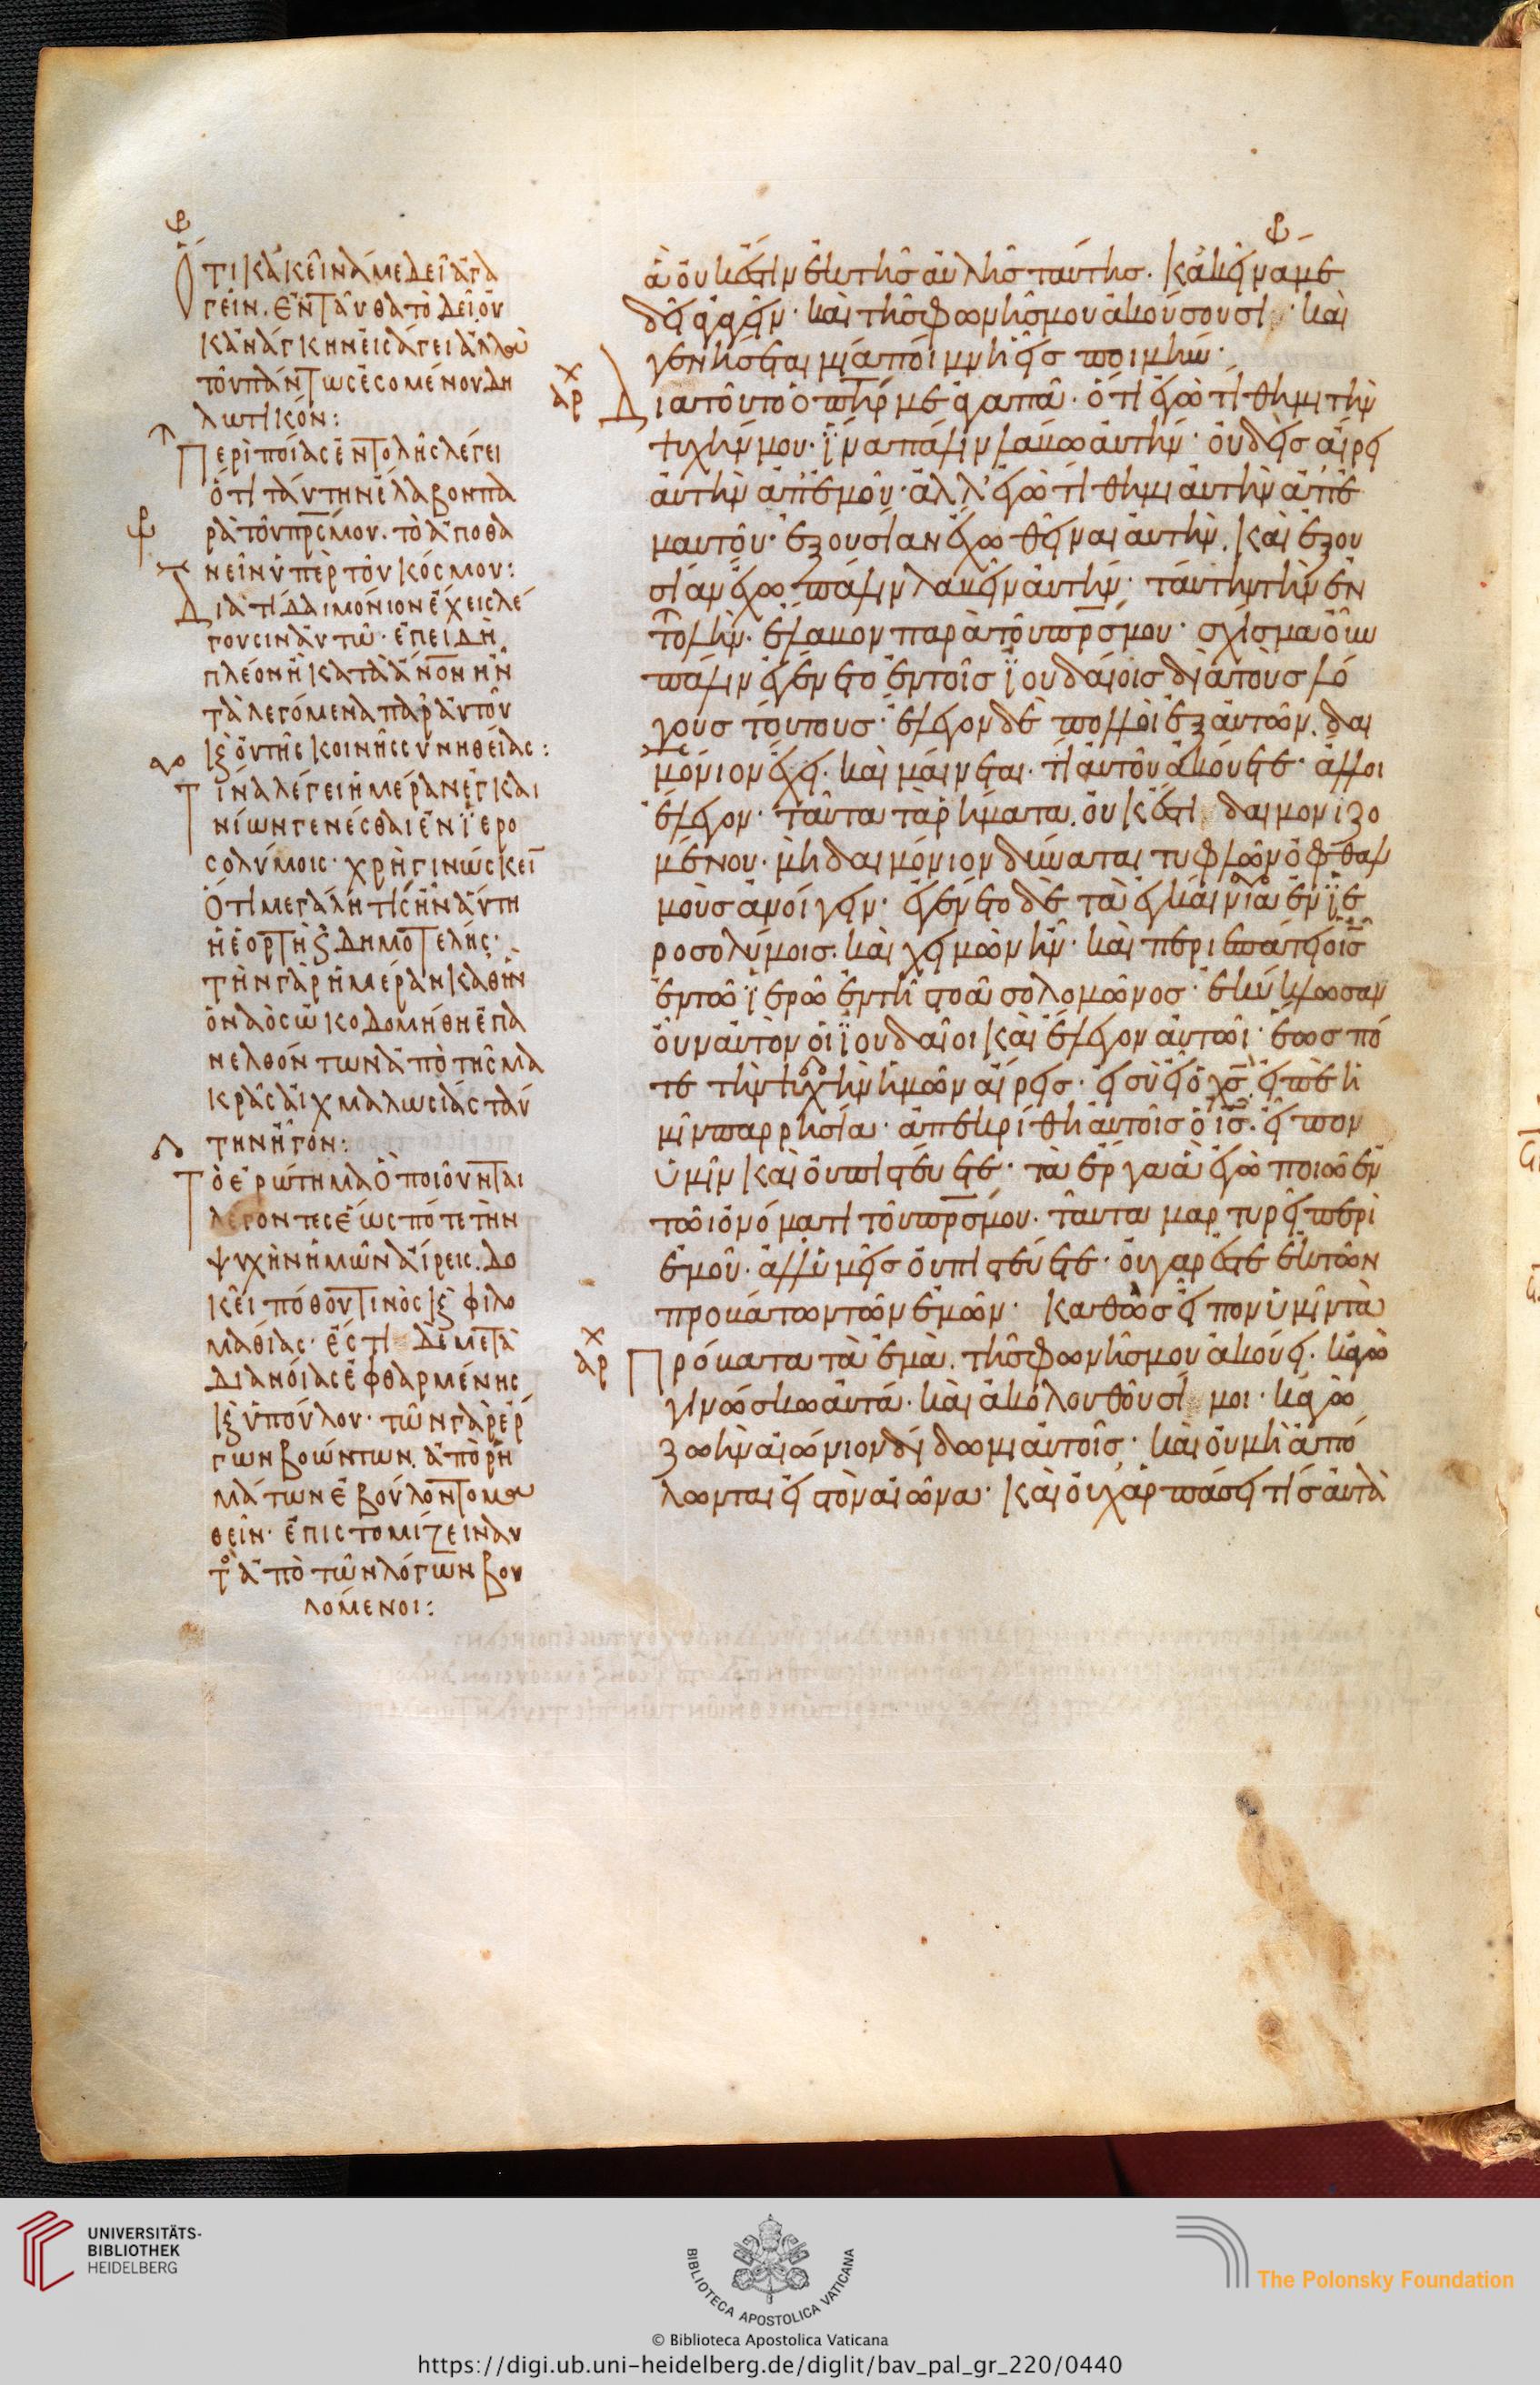 ὅτι κἀκεῖνά με δεῖ ἀγα
γεῖν. ἐνταῦθα τὸ δεῖ οὐ
κ ἀνάγκην εἰσάγει ἀλλὰ
τοῦ πάντως ἐσομένου δη
λωτικόν:
Περὶ ποίας ἐντολῆς λέγει
ὅτι ταύτην ἔλαβον πα
ρὰ τοῦ πρς μου. τὸ ἀποθα
νεῖν ὑπὲρ τοῦ κόσμου:
Διατί δαιμόνιον ἔχεις λέ
γουσιν αὐτῶ· ἐπειδὴ
πλέον ἢ κατὰ ἄνον ἦν
τὰ λεγόμενα παρ' αὐτοῦ
κ οὐ τῆς κοινῆς συνηθείας:
Τίνα λέγει ἡμέραν ἐγκαι
νίων γενέσθαι ἐν ϊερο
σολύμοις· χρὴ γινώσκειν
ὅτι μεγάλη τίς ἦν αὕτη
ἡ ἑορτὴ κ δημοτελής·
τὴν γὰρ ἡμέραν καθ' ἣν
ὁ ναὸς ὠκοδομήθη ἐπα
νελθόντων ἀπὸ τῆς μα
κρᾶς αἰχμαλωσίας ταύ
την ἦγον:
Τὸ ἐρώτημα ὃ ποιοῦνται
λέγοντες ἕως πότε τὴν
ψυχὴν ἡμῶν αἴρεις. δο
κεῖ πόθου τινὸς κ φιλο
μαθίας· ἐστὶ δὲ μετὰ
διανοίας ἐφθαρμένης
κ ὑπούλου· τῶν γὰρ ἔρ
γων βοώντων. ἀπὸ ῥη
μάτων ἐβούλοντο μα
θεῖν· ἐπιστομίζειν αὐ
τὸ ἀπὸ τῶν λόγων βου
λόμενοι:
ἃ οὐκ ἔστιν ἐκ τῆς αὐλῆς ταύτης. κἀκεῖνά με
δεῖ ἀγαγεῖν· καὶ τῆς φωνῆς μου ἀκούσουσι· καὶ
γενήσεται μία ποίμνη εἷς ποιμήν·
χ
αρ
Διατοῦτο ὁ πηρ με ἀγαπᾶ· ὅτι ἐγὼ τίθημι τὴν
ψυχήν μου· ϊνα πάλιν λάβω αὐτήν· οὐδεὶς αἴρει
αὐτὴν ἀπ' ἐμοῦ· ἀλλ' ἐγὼ τίθημι αὐτὴν ἀπ' ἐ
μαυτοῦ· ἐξουσίαν ἔχω θεῖναι αὐτήν. καὶ ἐξου
σίαν ἔχω πάλιν λαβεῖν αὐτήν· ταύτην τὴν ἐν
τολὴν. ἔλαβον παρὰ τοῦ πρς μου· σχίσμα οὖν
πάλιν ἐγένετο ἐν τοῖς ϊουδαίοις διὰ τοὺς λό
γους τούτους· ἔλεγον δὲ πολλοὶ ἐξ αὐτῶν. δαι
μόνιον ἔχει. καὶ μαίνεται. τί αὐτοῦ ἀκούετε· ἄλλοι
ἔλεγον· ταῦτα τὰ ῥήματα. οὐκ ἔστι δαιμονιζο
μένου. μὴ δαιμόνιον δύναται τυφλῶν ὀφθαλ
μοὺς ἀνοίγειν· ἐγένετο δὲ τὰ ἐγκαίνια ἐν ϊε
ροσολύμοις. καὶ χειμὼν ἦν· καὶ περιεπάτει ὁ ις
ἐν τῶ ϊερῶ ἐν τῆ στοᾶ σολομῶνος· ἐκύκλωσαν
οὖν αὐτὸν οἱ ϊουδαῖοι καὶ ἔλεγον αὐτῶι· ἕως πό
τε τὴν ψυχὴν ἡμῶν αἴρεις· εἰ σὺ εἶ ὁ χς εἰπὲ ἡ
μῖν παρρησία· ἀπεκρίθη αὐτοῖς ὁ ις. εἶπον
ὑμῖν καὶ οὐ πιστεύετε· τὰ ἔργα ἃ ἐγὼ ποιῶ ἐν
τῶι ὀνόματι τοῦ πρς μου. ταῦτα μαρτυρεῖ περὶ
ἐμοῦ· ἀλλ' ὑμεῖς οὐ πιστεύετε· οὐ γάρ ἐστε ἐκ τῶν
προβάτων τῶν ἐμῶν· καθὼς εἶπον ὑμῖν τὰ
χ
αρ
Πρόβατα τὰ ἐμὰ. τῆς φωνῆς μου ἀκούει. κἀγὼ
γινώσκω αὐτά. καὶ ἀκολουθοῦσί μοι· κἀγὼ
ζωὴν αἰώνιον δίδωμι αὐτοῖς· καὶ οὐ μὴ ἀπό
λωνται εἰς τὸν αἰῶνα· καὶ οὐχ ἁρπάσει τίς αὐτὰ
UNIVERSITÄTS-
BIBLIOTHEK
HEIDELBERG
BIBLIOTECA APOSTOLICA VATICANA
The Polonsky Foundation
© Biblioteca Apostolica Vaticana
https://digi.ub.uni-heidelberg.de/diglit/bav_pal_gr_220/0440